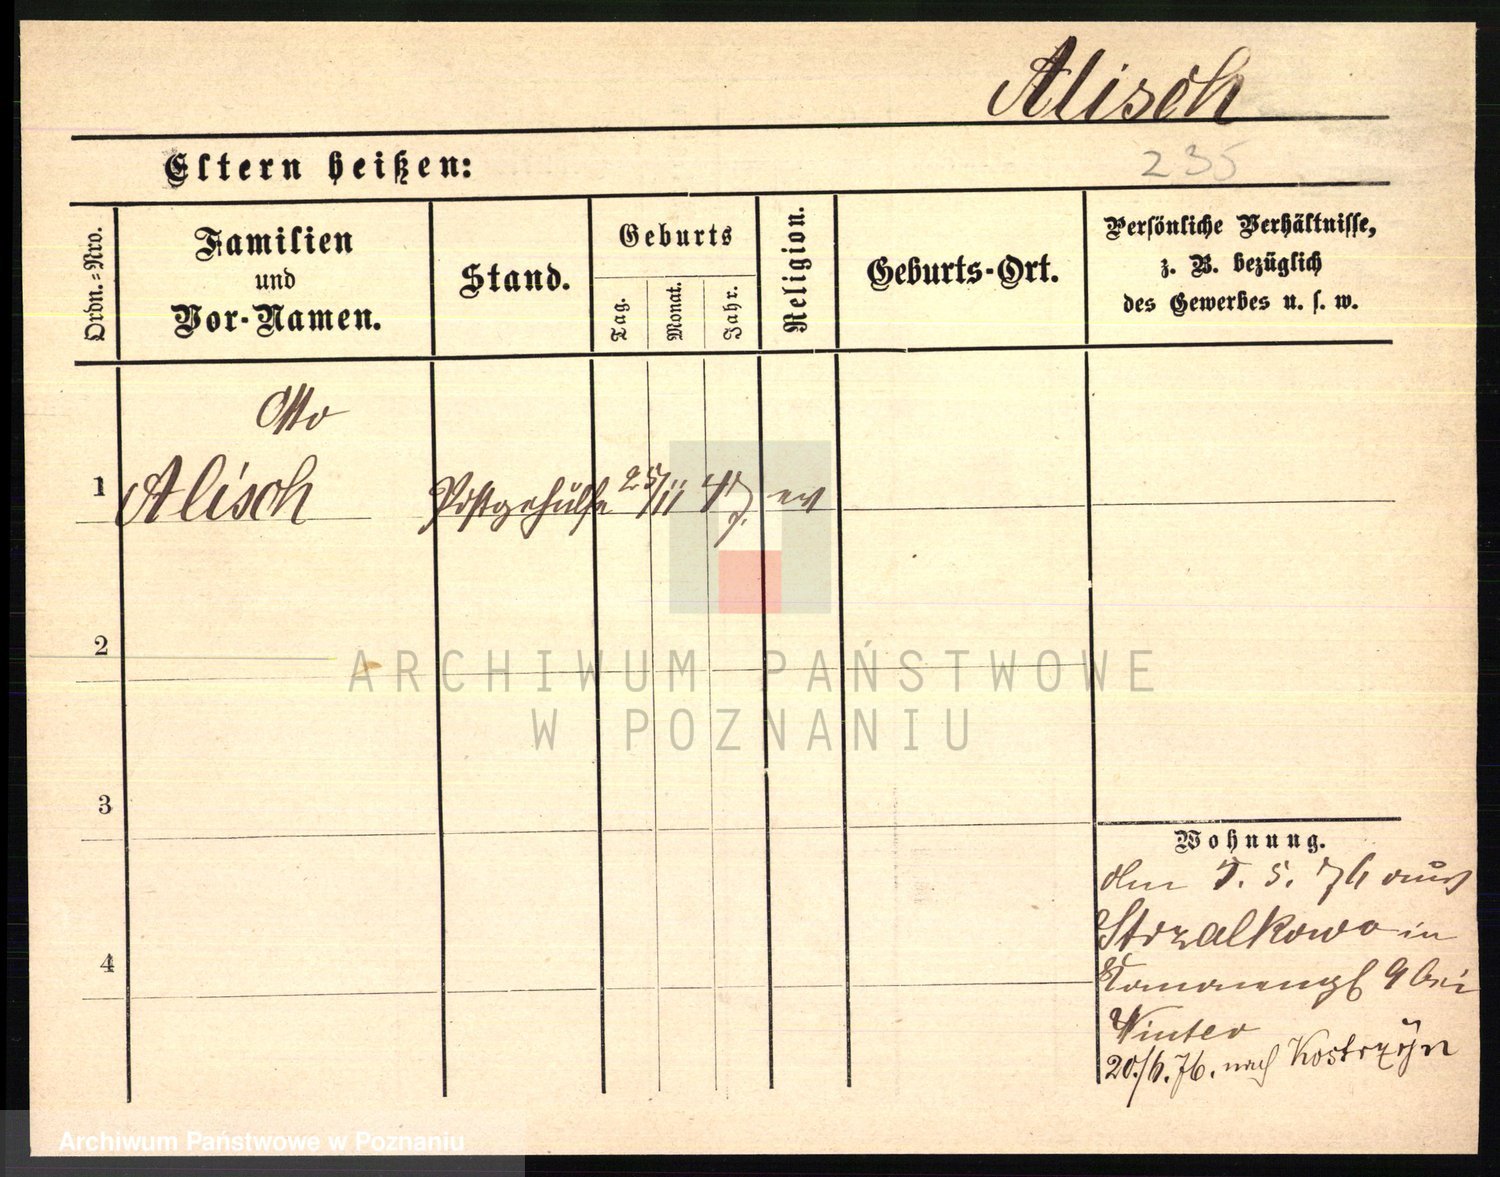 Alisch
235
Eltern heißen:
Ordn.=Nro.
Familien
und
Vor-Namen.
Stand.
Geburts
Tag.
Monat.
Jahr.
Religion.
Geburts-Ort.
Persönliche Verhältnisse,
z. B. bezüglich
des Gewerbes u. s. w.
Otto
1 Alisch Postgehülfe 25/11 ev
2
3
4
Wohnung.
den 5. 76 aus
Strzalkowo in
9 bei
Winter
20./6. 76. nach Kostrzyn
ARCHIWUM PAŃSTWOWE
W POZNANIU
Archiwum Państwowe w Poznaniu